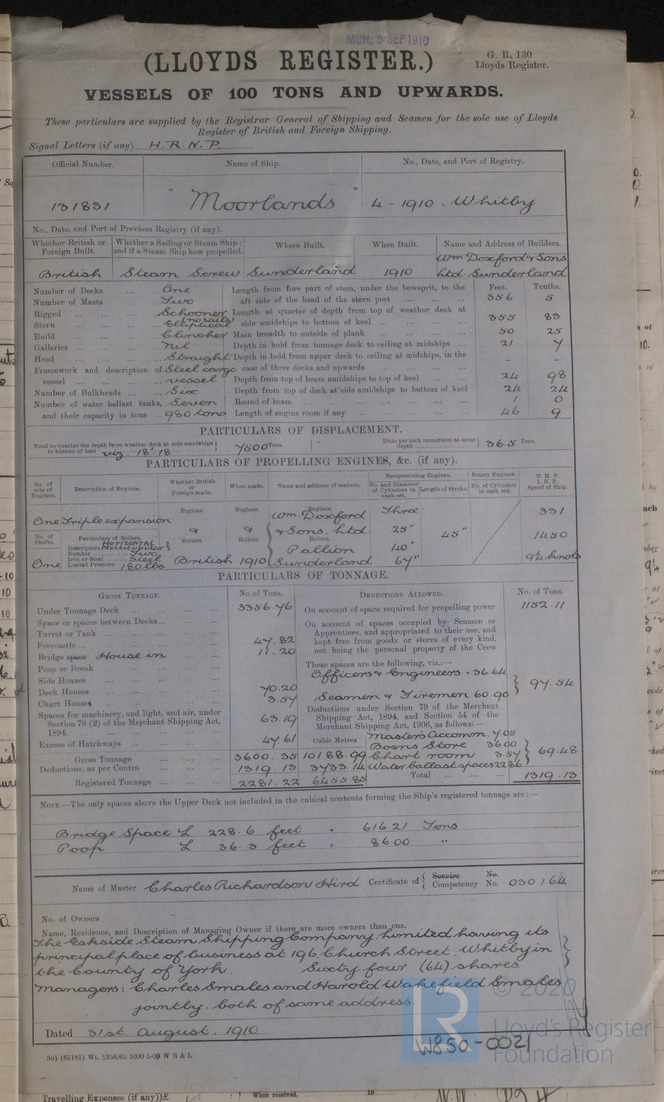 MON. 5 SEP 1910
(LLOYDS REGISTER.)
G. R. 130
Lloyds Register.
VESSELS OF 100 TONS AND UPWARDS.
These particulars are supplied by the Registrar General of Shipping and Seamen for the sole use of Lloyds
Register of British and Foreign Shipping.
Signal Letters (if any) H.R.N.P.
Official Number. Name of Ship. No., Date, and Port of Registry.
131831 "Moorlands" 4 - 1910 Whitby
No., Date, and Port of Previous Registry (if any).
Whether British or Foreign Built. Whether a Sailing or Steam Ship; and if a Steam Ship how propelled. Where Built. When Built. Name and Address of Builders.
British Steam Screw Sunderland 1910 Wm Doxford & Sons Ltd. Sunderland
Number of Decks ... One
Number of Masts ... Two
Rigged ... Schooner no sails
Stern ... Elliptical
Build ... Clincher
Galleries ... nil
Head ... Straight
Framework and description of vessel ... Steel cargo vessel
Number of Bulkheads ... Six
Number of water ballast tanks, and their capacity in tons ... Seven 980 tons
Feet. Tenths.
Length from fore part of stem, under the bowsprit, to the aft side of the head of the stern post ... 356 5
Length at quarter of depth from top of weather deck at side amidships to bottom of keel ... 355 83
Main breadth to outside of plank ... 50 25
Depth in hold from tonnage deck to ceiling at midships ... 21 7
Depth in hold from upper deck to ceiling at midships, in the case of three decks and upwards ... - -
Depth from top of beam amidships to top of keel ... 24 98
Depth from top of deck at side amidships to bottom of keel 24 24
Round of beam ... 1 0
Length of engine room if any ... 46 9
PARTICULARS OF DISPLACEMENT.
Total to quarter the depth from weather deck at side amidships to bottom of keel viz. 18'.18 7500 Tons. Ditto per inch immersion at same depth 36.5 Tons.
PARTICULARS OF PROPELLING ENGINES, &c. (if any).
No. of sets of Engines. Description of Engines. Whether British or Foreign made. When made. Name and address of makers. Reciprocating Engines. No. and Diameter of Cylinders in each set. Length of Stroke. Rotary Engines. No. of Cylinders in each set. N.H.P. I.H.P. Speed of Ship.
Engines. Engines. Engines.
One Triple expansion Wm. Doxford Three 331
No. of Shafts. Particulars of Boilers. & Boilers. & Boilers. & Sons, Ltd Boilers. 25" 45" 1450
Description Horizontal Multitubular
Number Two Pallion 40"
Iron or Steel Steel
One Loaded Pressure 180 lbs British 1910 Sunderland 67" 9¼ knots
PARTICULARS OF TONNAGE.
GROSS TONNAGE. No. of Tons. DEDUCTIONS ALLOWED. No. of Tons.
Under Tonnage Deck ... 3356.76
Space or spaces between Decks ...
Turret or Tank ...
Forecastle ... 47.82
Bridge space House in 11.20
Poop or Break
Side Houses
Deck Houses 70.20
Chart Houses 3.57
Spaces for machinery, and light, and air, under Section 78 (2) of the Merchant Shipping Act, 1894. 63.19
Excess of Hatchways ... 47.61
Cubic Metres
Gross Tonnage 3600.35 10188.99
Deductions, as per Contra 1319.13 3733.14
Registered Tonnage 2281.22 6455.85
On account of space required for propelling power 1152.11
On account of spaces occupied by Seamen or Apprentices, and appropriated to their use, and kept free from goods or stores of every kind, not being the personal property of the Crew
These spaces are the following, viz.:—
Officers & Engineers - 36.64
Seamen & Firemen 60.90 97.54
Deductions under Section 79 of the Merchant Shipping Act, 1894, and Section 54 of the Merchant Shipping Act, 1906, as follows:—
Master's Accomm. 7.05
Boson's Store 36.00
Chart room 3.57
Water ballast spaces 22.86 69.48
Total ... 1319.13
NOTE.—The only spaces above the Upper Deck not included in the cubical contents forming the Ship's registered tonnage are:—
Bridge Space L 228.6 feet " 616.21 Tons
Poop L 36.3 feet " 86.00 "
Name of Master Charles Richardson Hird Certificate of { Service No. Competency No. 030164
No. of Owners
Name, Residence, and Description of Managing Owner if there are more owners than one.
The Eskside Steam Shipping Company limited having its
principal place of business at 196, Church Street, Whitby in
the County of York. Sixty four (64) shares
Managers: Charles Smales and Harold Wakefield Smales
jointly. both of same address.
Dated 31st August. 1910
3o1 (65181) Wt. 5356/61 1000 5-09 W B & L
LR
© 2020
Lloyd's Register
Foundation
W850-0021
Travelling Expenses (if any)) £
When received.